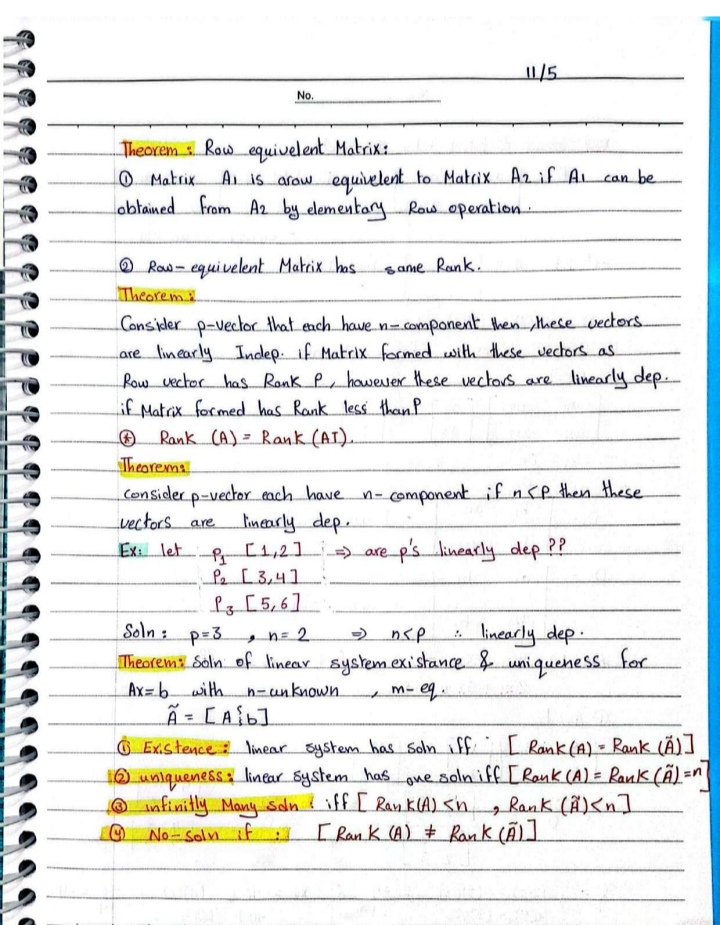 11/5
No.
Theorem : Row equivelent Matrix:
① Matrix A1 is arow equivelent to Matrix A2 if A1 can be
obtained from A2 by elementary Row operation.
② Row-equivelent Matrix has same Rank.
Theorem:
Consider p-vector that each have n-component then, these vectors
are linearly Indep. if Matrix formed with these vectors as
Row vector has Rank P, however these vectors are linearly dep.
if Matrix formed has Rank less than P
⊛ Rank (A) = Rank (AT).
Theorem:
consider p-vector each have n-component if n<P then these
vectors are linearly dep.
Ex: let P1 [1,2] ⇒ are p's linearly dep ??
P2 [3,4]
P3 [5,6]
Soln: p=3 , n=2 ⇒ n<p ∴ linearly dep.
Theorem: Soln of linear system existance & uniqueness for
Ax=b with n-unknown , m-eq.
Ã = [A¦b]
① Existence: linear system has soln iff [Rank(A) = Rank (Ã)]
② uniqueness: linear system has one soln iff [Rank(A) = Rank(Ã) = n]
③ infinitly Many soln : iff [Rank(A) <n , Rank (Ã)<n]
④ No-soln if : [Rank (A) ≠ Rank(Ã)]